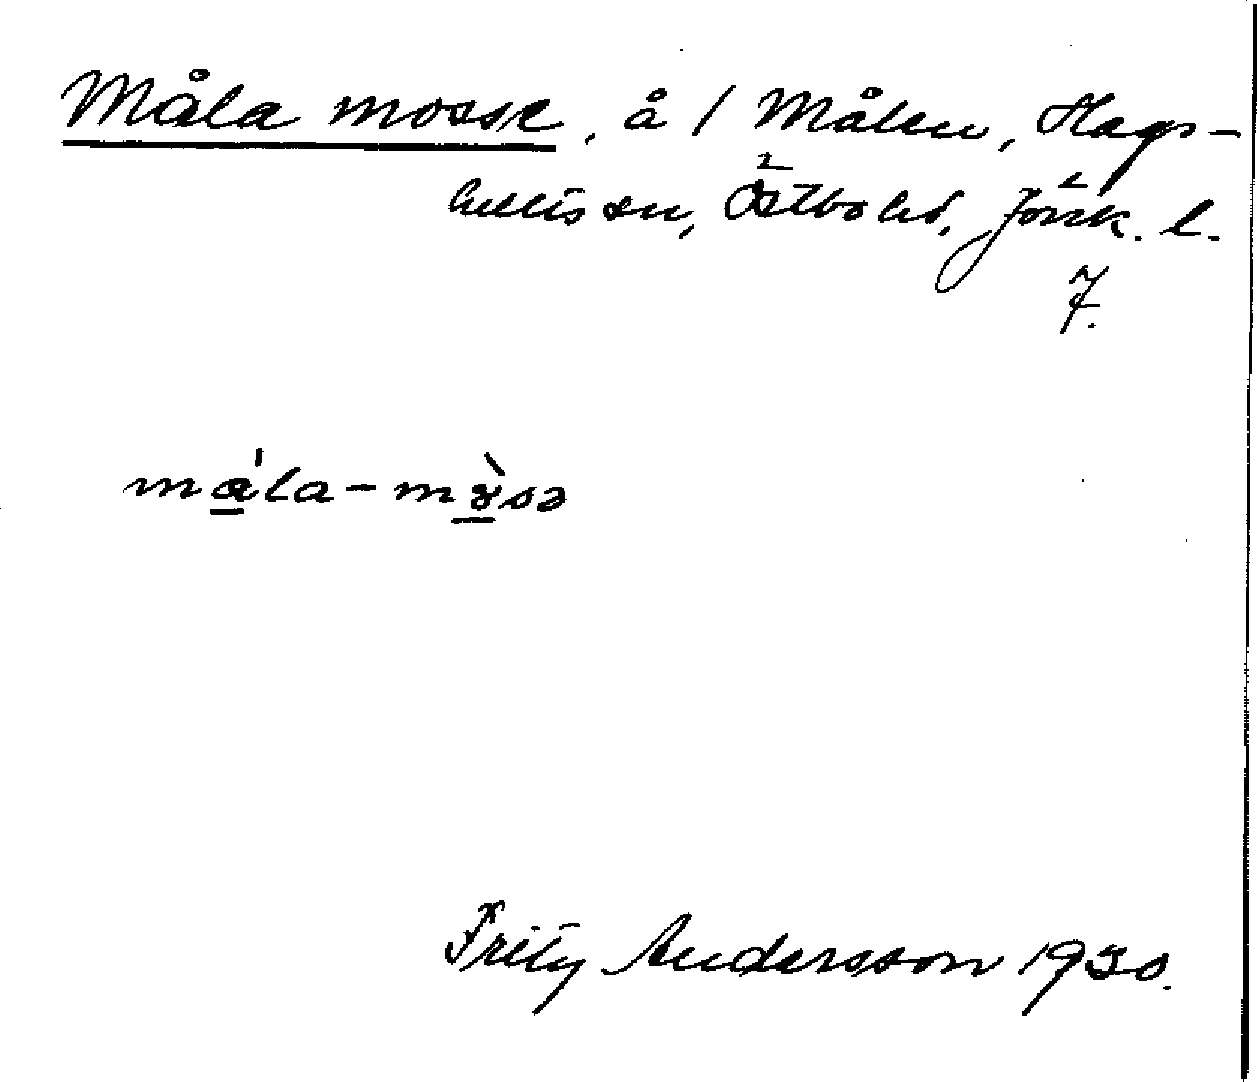 Måla mosse, å / Målen, Hags-
hultssn, Östbo hd, Jönk. l.
7.
måla-mòsə
Fritz Andersson 1930.